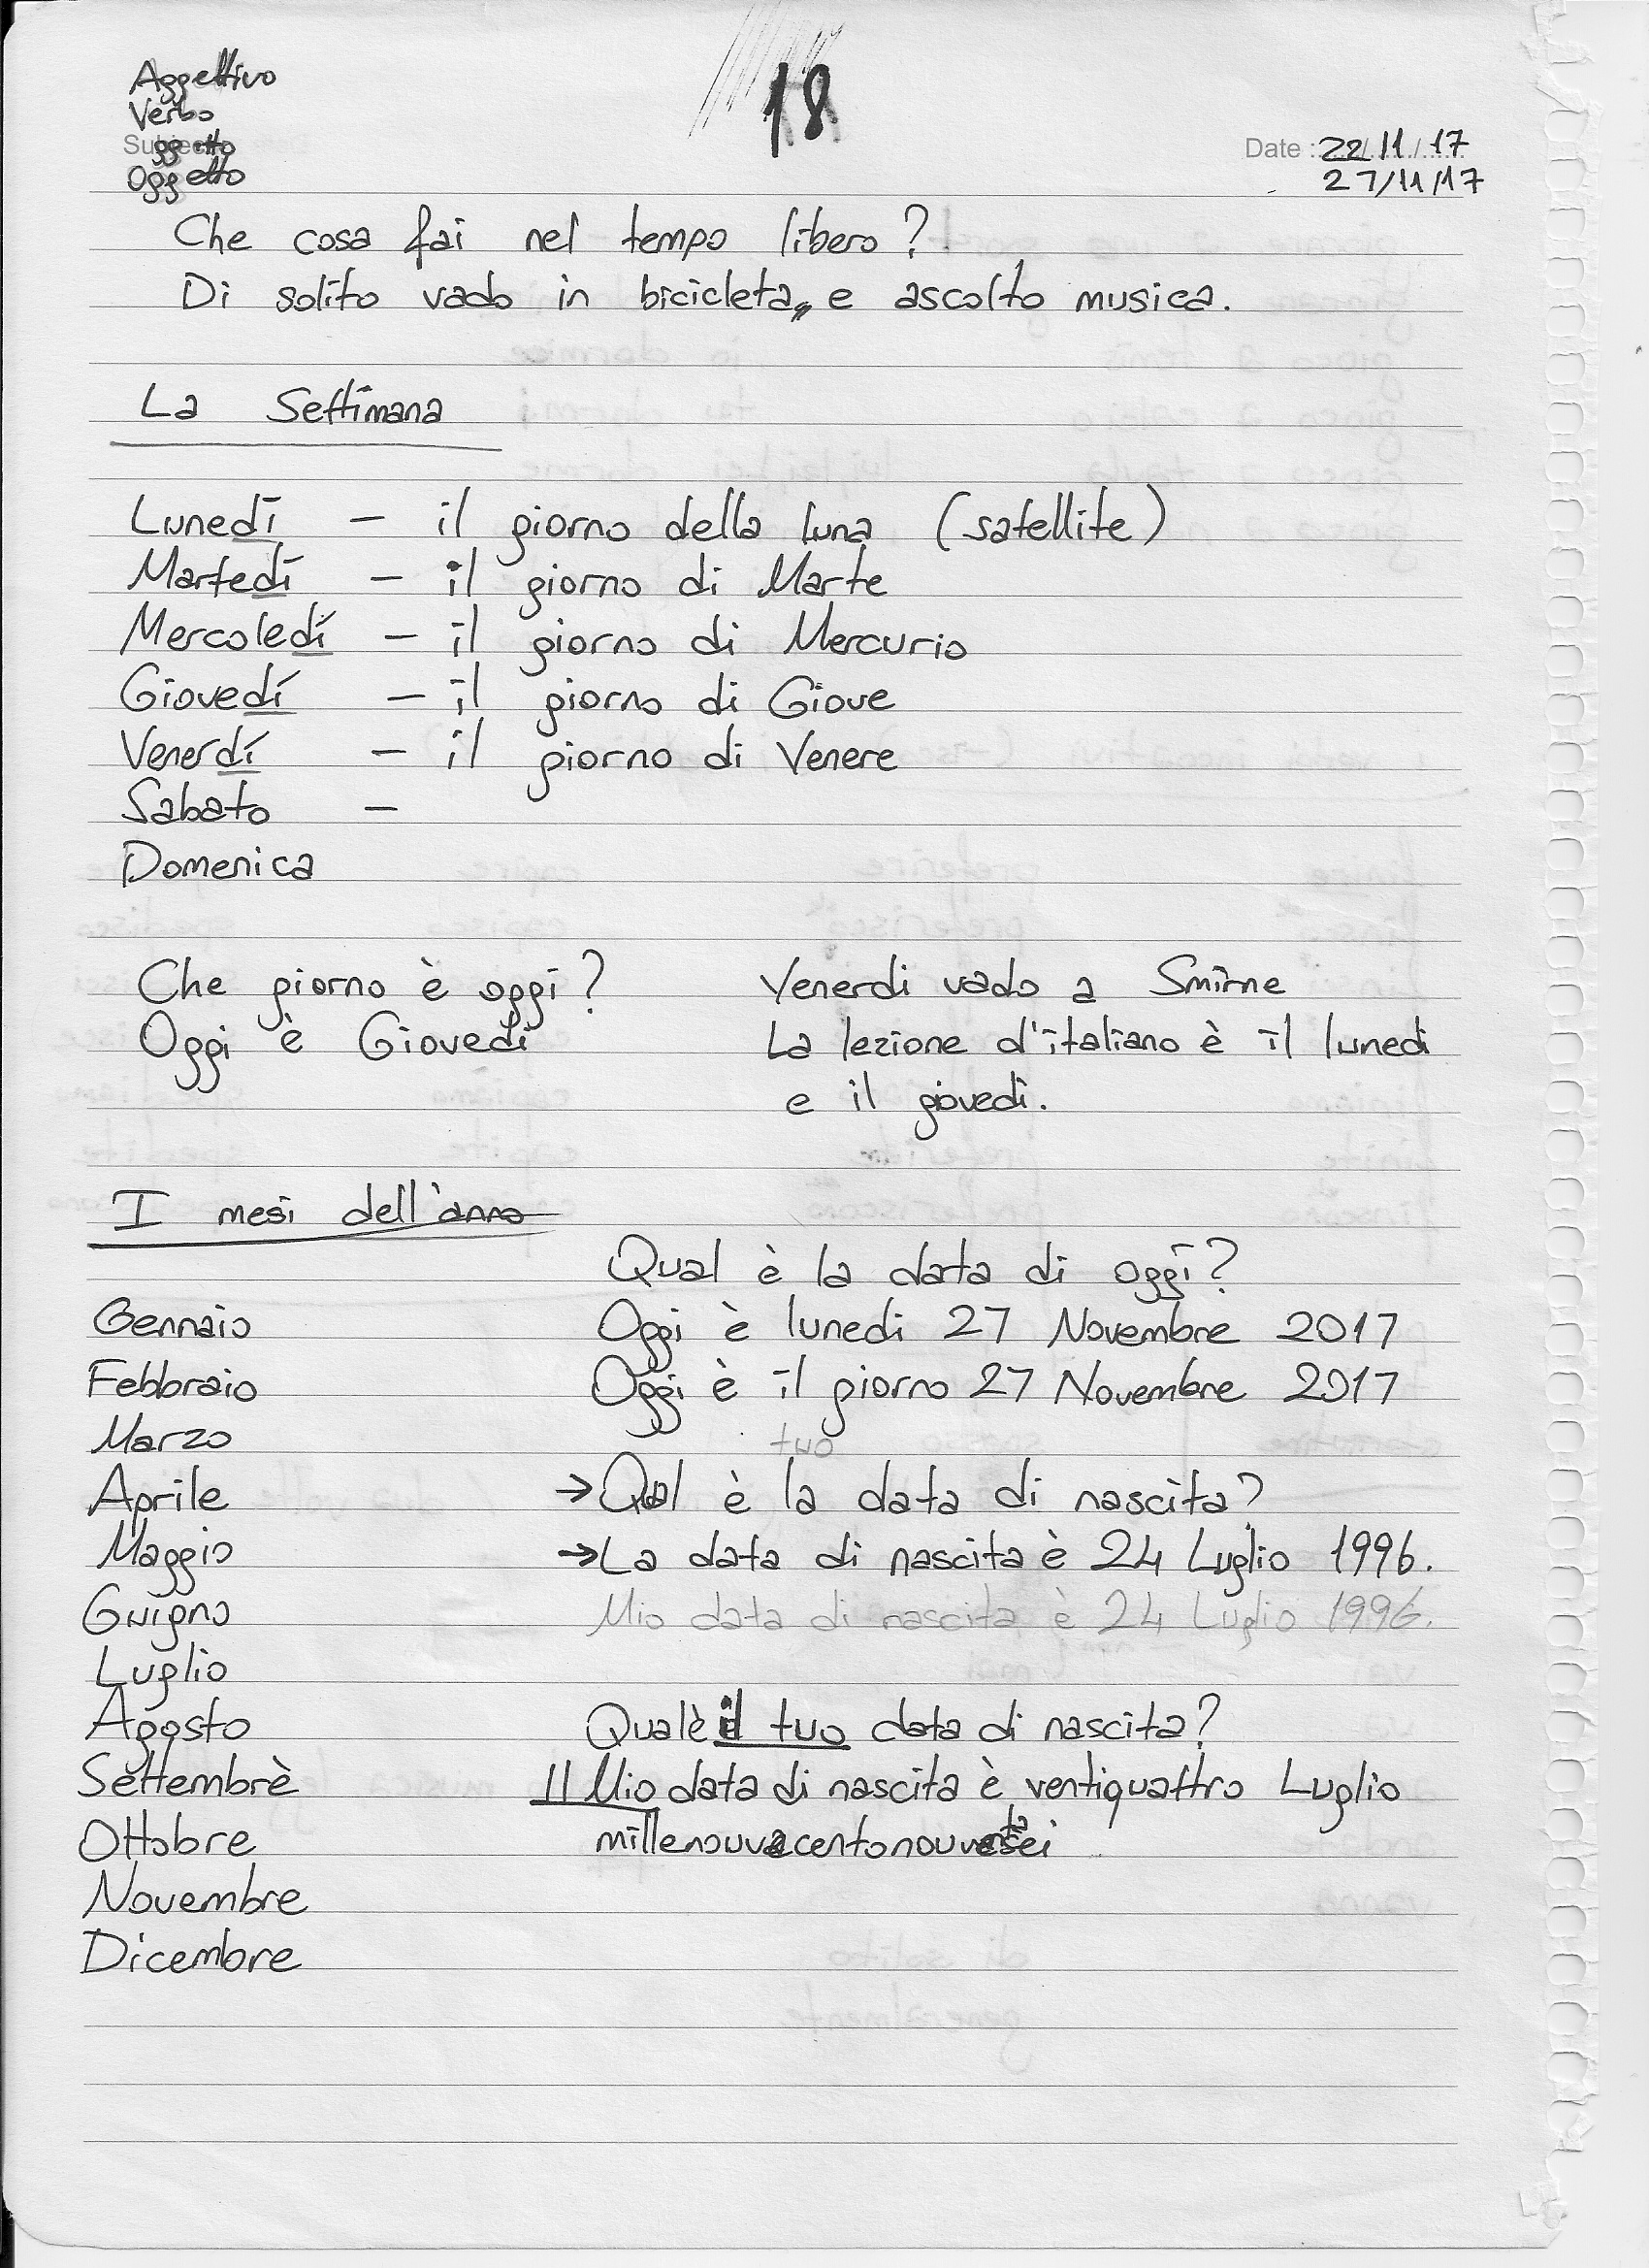 18
Aggettivo
Verbo
Soggetto
Oggetto
Date : 22/11/17
27/11/17
Che cosa fai nel tempo libero?
Di solito vado in bicicleta, e ascolto musica.
La Settimana
Lunedí – il giorno della luna (satellite)
Martedí – il giorno di Marte
Mercoledí – il giorno di Mercurio
Giovedí – il giorno di Giove
Venerdí – il giorno di Venere
Sabato –
Domenica
Che giorno è oggi?
Oggi è Giovedi
Venerdi vado a Smirne
La lezione d'italiano è il lunedi
e il giovedi.
I mesi dell'anno
Gennaio
Febbraio
Marzo
Aprile
Maggio
Guigno
Luglio
Agosto
Settembrè
Ottobre
Novembre
Dicembre
Qual è la data di oggi?
Oggi è lunedi 27 Novembre 2017
Oggi è il giorno 27 Novembre 2017
tuo
→ Qual è la data di nascita?
→ La data di nascita è 24 Luglio 1996.
Mio data di nascita è 24 Luglio 1996.
Qualè il tuo data di nascita?
Il Mio data di nascita è ventiquattro Luglio